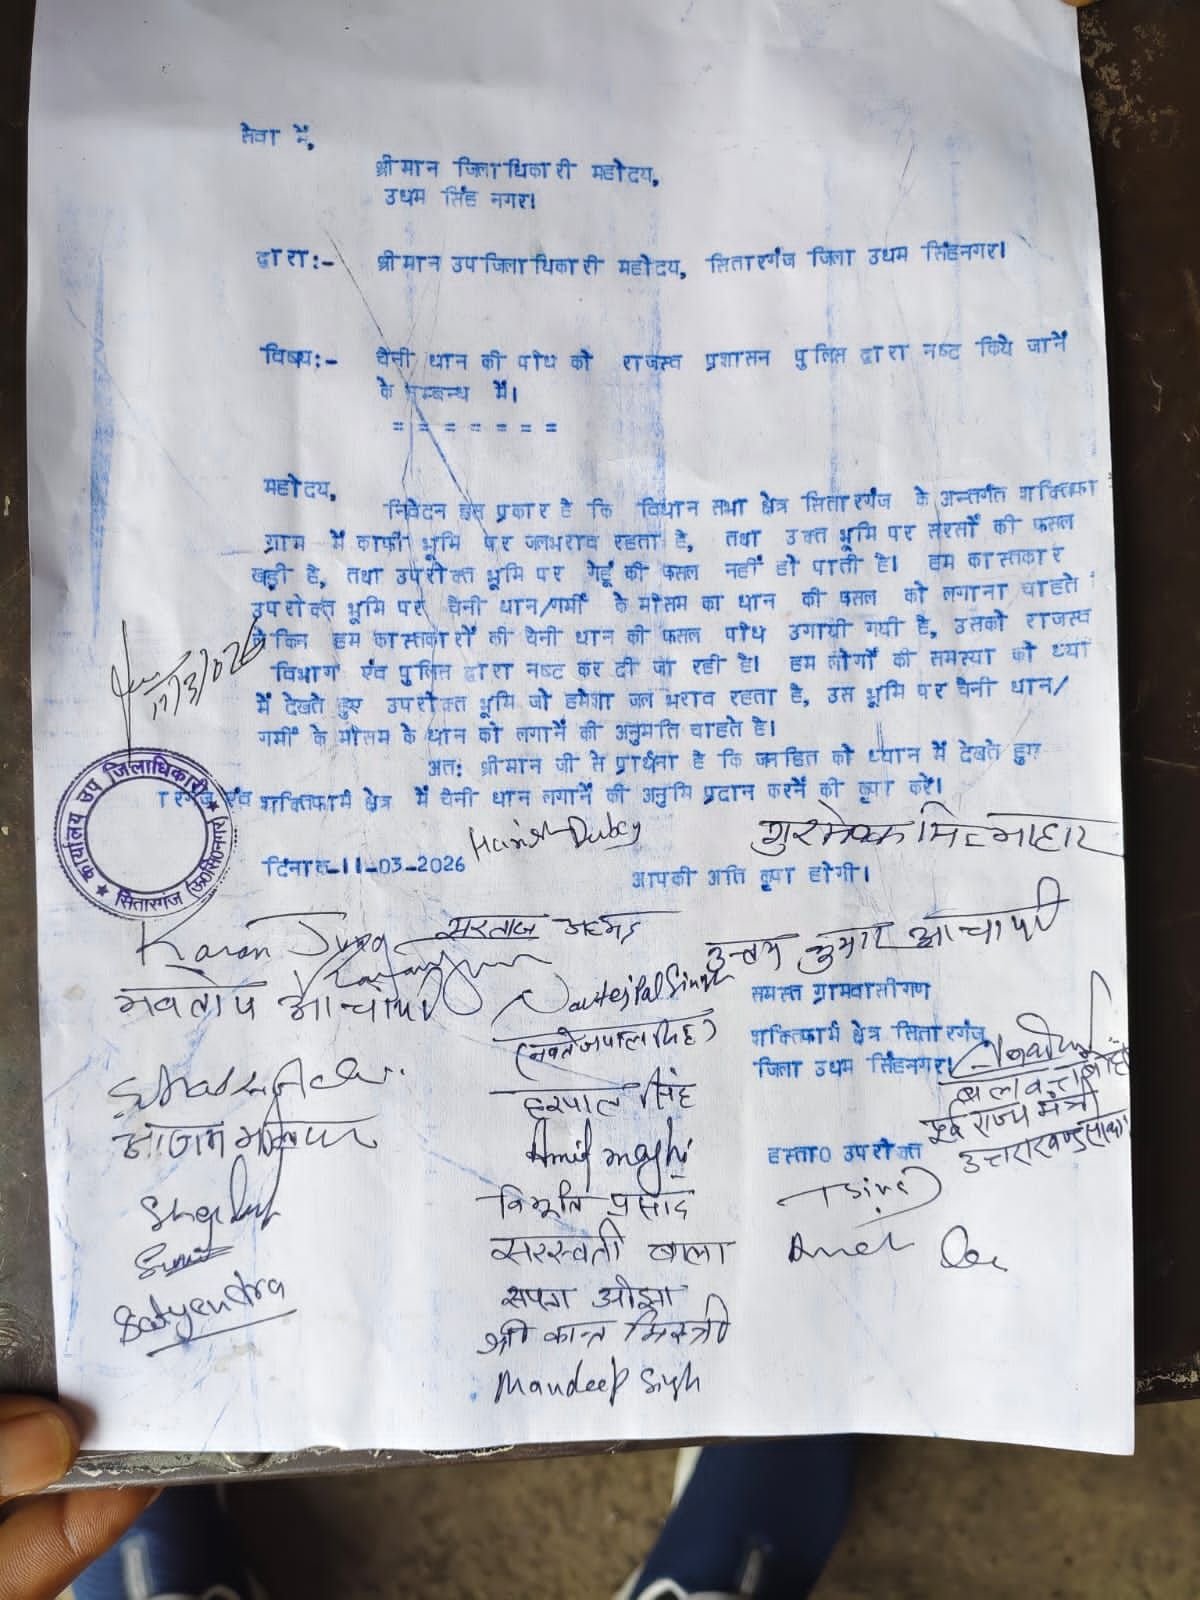 सेवा में,
श्रीमान जिलाधिकारी महोदय,
उधम सिंह नगर।
द्वारा:- श्रीमान उपजिलाधिकारी महोदय, सितारगंज जिला उधम सिंहनगर।
विषय:- चैनी धान की पौध को राजस्व प्रशासन पुलिस द्वारा नष्ट किये जानें
के सम्बन्ध में।
= = = = = = =
महोदय,
निवेदन इस प्रकार है कि विधान सभा क्षेत्र सितारगंज के अन्तर्गत शक्तिफा
ग्राम में काफी भूमि पर जलभराव रहता है, तथा उक्त भूमि पर सरसों की फसल
खड़ी है, तथा उपरोक्त भूमि पर गेहूं की फसल नहीं हो पाती है। हम कास्तकार
उपरोक्त भूमि पर चैनी धान/गर्मी के मौसम का धान की फसल को लगाना चाहते
लेकिन हम कास्तकारों की चैनी धान की फसल पौध उगायी गयी है, उसको राजस्व
विभाग एंव पुलिस द्वारा नष्ट कर दी जा रही है। हम लोगों की समस्या को ध्या
में देखते हुए उपरोक्त भूमि जो हमेशा जल भराव रहता है, उस भूमि पर चैनी धान/
गर्मी के मौसम के धान को लगानें की अनुमति चाहते है।
अत: श्रीमान जी से प्रार्थना है कि जनहित को ध्यान में देखते हुए
तारगंज एंव शक्तिफार्म क्षेत्र में चैनी धान लगानें की अनुमि प्रदान करनें की कृपा करें।
17/3/2026
कार्यालय उप जिलाधिकारी
सितारगंज (ऊ0सि0नगर)
Harish Dubey
दिनांक-11-03-2026
आपकी अति कृपा होगी।
Karan
सरताज अहमद
उत्तम कुमार आचार्य
भवतोष आचार्य
Navtej Pal Singh
समस्त ग्रामवासीगण
(नवतेजपाल सिंह)
शक्तिफार्म क्षेत्र सितारगंज,
जिला उधम सिंहनगर।
हरपाल सिंह
पूर्व राज्य मंत्री
उत्तराखण्ड
हस्ता0 उपरोक्त
विभूति प्रसाद
सरस्वती बाला
सपना ओझा
Satyendra
श्री कान्त मिस्त्री
Mandeep Singh